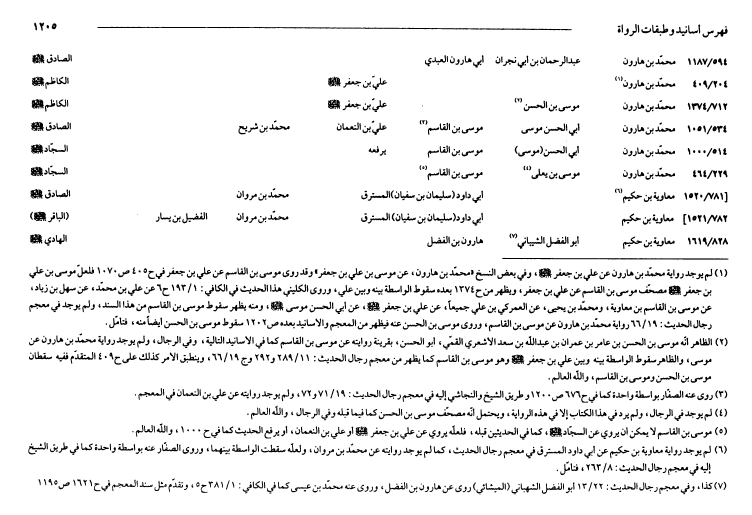 فهرس أسانيد وطبقات الرواة ١٢٠٥
١١٨٧/٥٩٤ محمّد بن هارون عبدالرحمان بن أبي نجران أبي هارون العبدي الصادق ﷺ
٤٠٩/٢٠٤ محمّد بن هارون(١) عليّ بن جعفر ﷺ الكاظم ﷺ
١٣٧٤/٧١٢ محمّد بن هارون موسى بن الحسن(٢) عليّ بن جعفر ﷺ الكاظم ﷺ
١٠٥١/٥٣٤ محمّد بن هارون أبي الحسن موسى موسى بن القاسم(٣) عليّ بن النعمان محمّد بن شريح الصادق ﷺ
١٠٠٠/٥١٤ محمّد بن هارون أبي الحسن (موسى) موسى بن القاسم يرفعه السجّاد ﷺ
٤٦٤/٢٢٩ محمّد بن هارون موسى بن يعلى(٤) موسى بن القاسم(٥) السجّاد ﷺ
[١٥٢٠/٧٨١ معاوية بن حكيم(٦) أبي داود (سليمان بن سفيان) المسترق محمّد بن مروان الصادق ﷺ
١٥٢١/٧٨٢] معاوية بن حكيم أبي داود (سليمان بن سفيان) المسترق محمّد بن مروان الفضيل بن يسار (الباقر ﷺ)
١٦١٩/٨٢٨ معاوية بن حكيم أبو الفضل الشيباني(٧) هارون بن الفضل الهادي ﷺ
(١) لم يوجد رواية محمّد بن هارون عن علي بن جعفر ﷺ، وفي بعض النسخ «محمّد بن هارون، عن موسى بن علي بن جعفر» وقد روى موسى بن القاسم عن علي بن جعفر في ح٤٠٥ ص١٠٧٠ فلعلّ موسى بن علي
بن جعفر ﷺ مصحّف موسى بن القاسم عن علي بن جعفر، ويظهر من ح١٣٧٤ بعده سقوط الواسطة بينه وبين علي، وروى الكليني هذا الحديث في الكافي: ١٩٣/١ ح٦ عن علي بن محمّد، عن سهل بن زياد،
عن موسى بن القاسم بن معاوية، ومحمّد بن يحيى، عن العمركي بن علي جميعاً، عن علي بن جعفر ﷺ، عن أبي الحسن موسى ﷺ، ومنه يظهر سقوط موسى بن القاسم من هذا السند، ولم يوجد في معجم
رجال الحديث: ٦٦/١٩ رواية محمّد بن هارون عن موسى بن القاسم، وروى موسى بن الحسن عنه فيظهر من المعجم والأسانيد بعده ص١٢٠٢ سقوط موسى بن الحسن أيضاً منه، فتأمّل.
(٢) الظاهر أنّه موسى بن الحسن بن عامر بن عمران بن عبدالله بن سعد الأشعري القمّي، أبو الحسن، بقرينة روايته عن موسى بن القاسم كما في الأسانيد التالية، وفي الرجال، ولم يوجد رواية محمّد بن هارون عن
موسى، والظاهر سقوط الواسطة بينه وبين علي بن جعفر ﷺ وهو موسى بن القاسم كما يظهر من معجم رجال الحديث: ٢٨٩/١١ و٢٩٢ وج ٦٦/١٩، وينطبق الأمر كذلك على ح٤٠٩ المتقدّم ففيه سقطان
موسى بن الحسن وموسى بن القاسم، والله العالم.
(٣) روى عنه الصفّار بواسطة واحدة كما في ح٦٧٦ ص١٢٠٠ وطريق الشيخ والنجاشي إليه في معجم رجال الحديث: ٧١/١٩ و٧٢، ولم يوجد روايته عن علي بن النعمان في المعجم.
(٤) لم يوجد في الرجال، ولم يرد في هذا الكتاب إلا في هذه الرواية، ويحتمل أنّه مصحّف موسى بن الحسن كما فيما قبله وفي الرجال، والله العالم.
(٥) موسى بن القاسم لا يمكن أن يروي عن السجّاد ﷺ، كما في الحديثين قبله، فلعلّه يروي عن علي بن جعفر ﷺ أو علي بن النعمان، أو يرفع الحديث كما في ح ١٠٠٠، والله العالم.
(٦) لم يوجد رواية معاوية بن حكيم عن أبي داود المسترق في معجم رجال الحديث، كما لم يوجد روايته عن محمّد بن مروان، ولعلّه سقطت الواسطة بينهما، وروى الصفّار عنه بواسطة واحدة كما في طريق الشيخ
إليه في معجم رجال الحديث: ٢٦٣/٨، فتأمّل.
(٧) كذا، وفي معجم رجال الحديث: ١٣/٢٢ أبو الفضل الشهباني (الميشائي) روى عن هارون بن الفضل، وروى عنه محمّد بن عيسى كما في الكافي: ٣٨١/١ ح٥، وتقدّم مثل سند المعجم في ح١٦٢١ ص١١٩٥